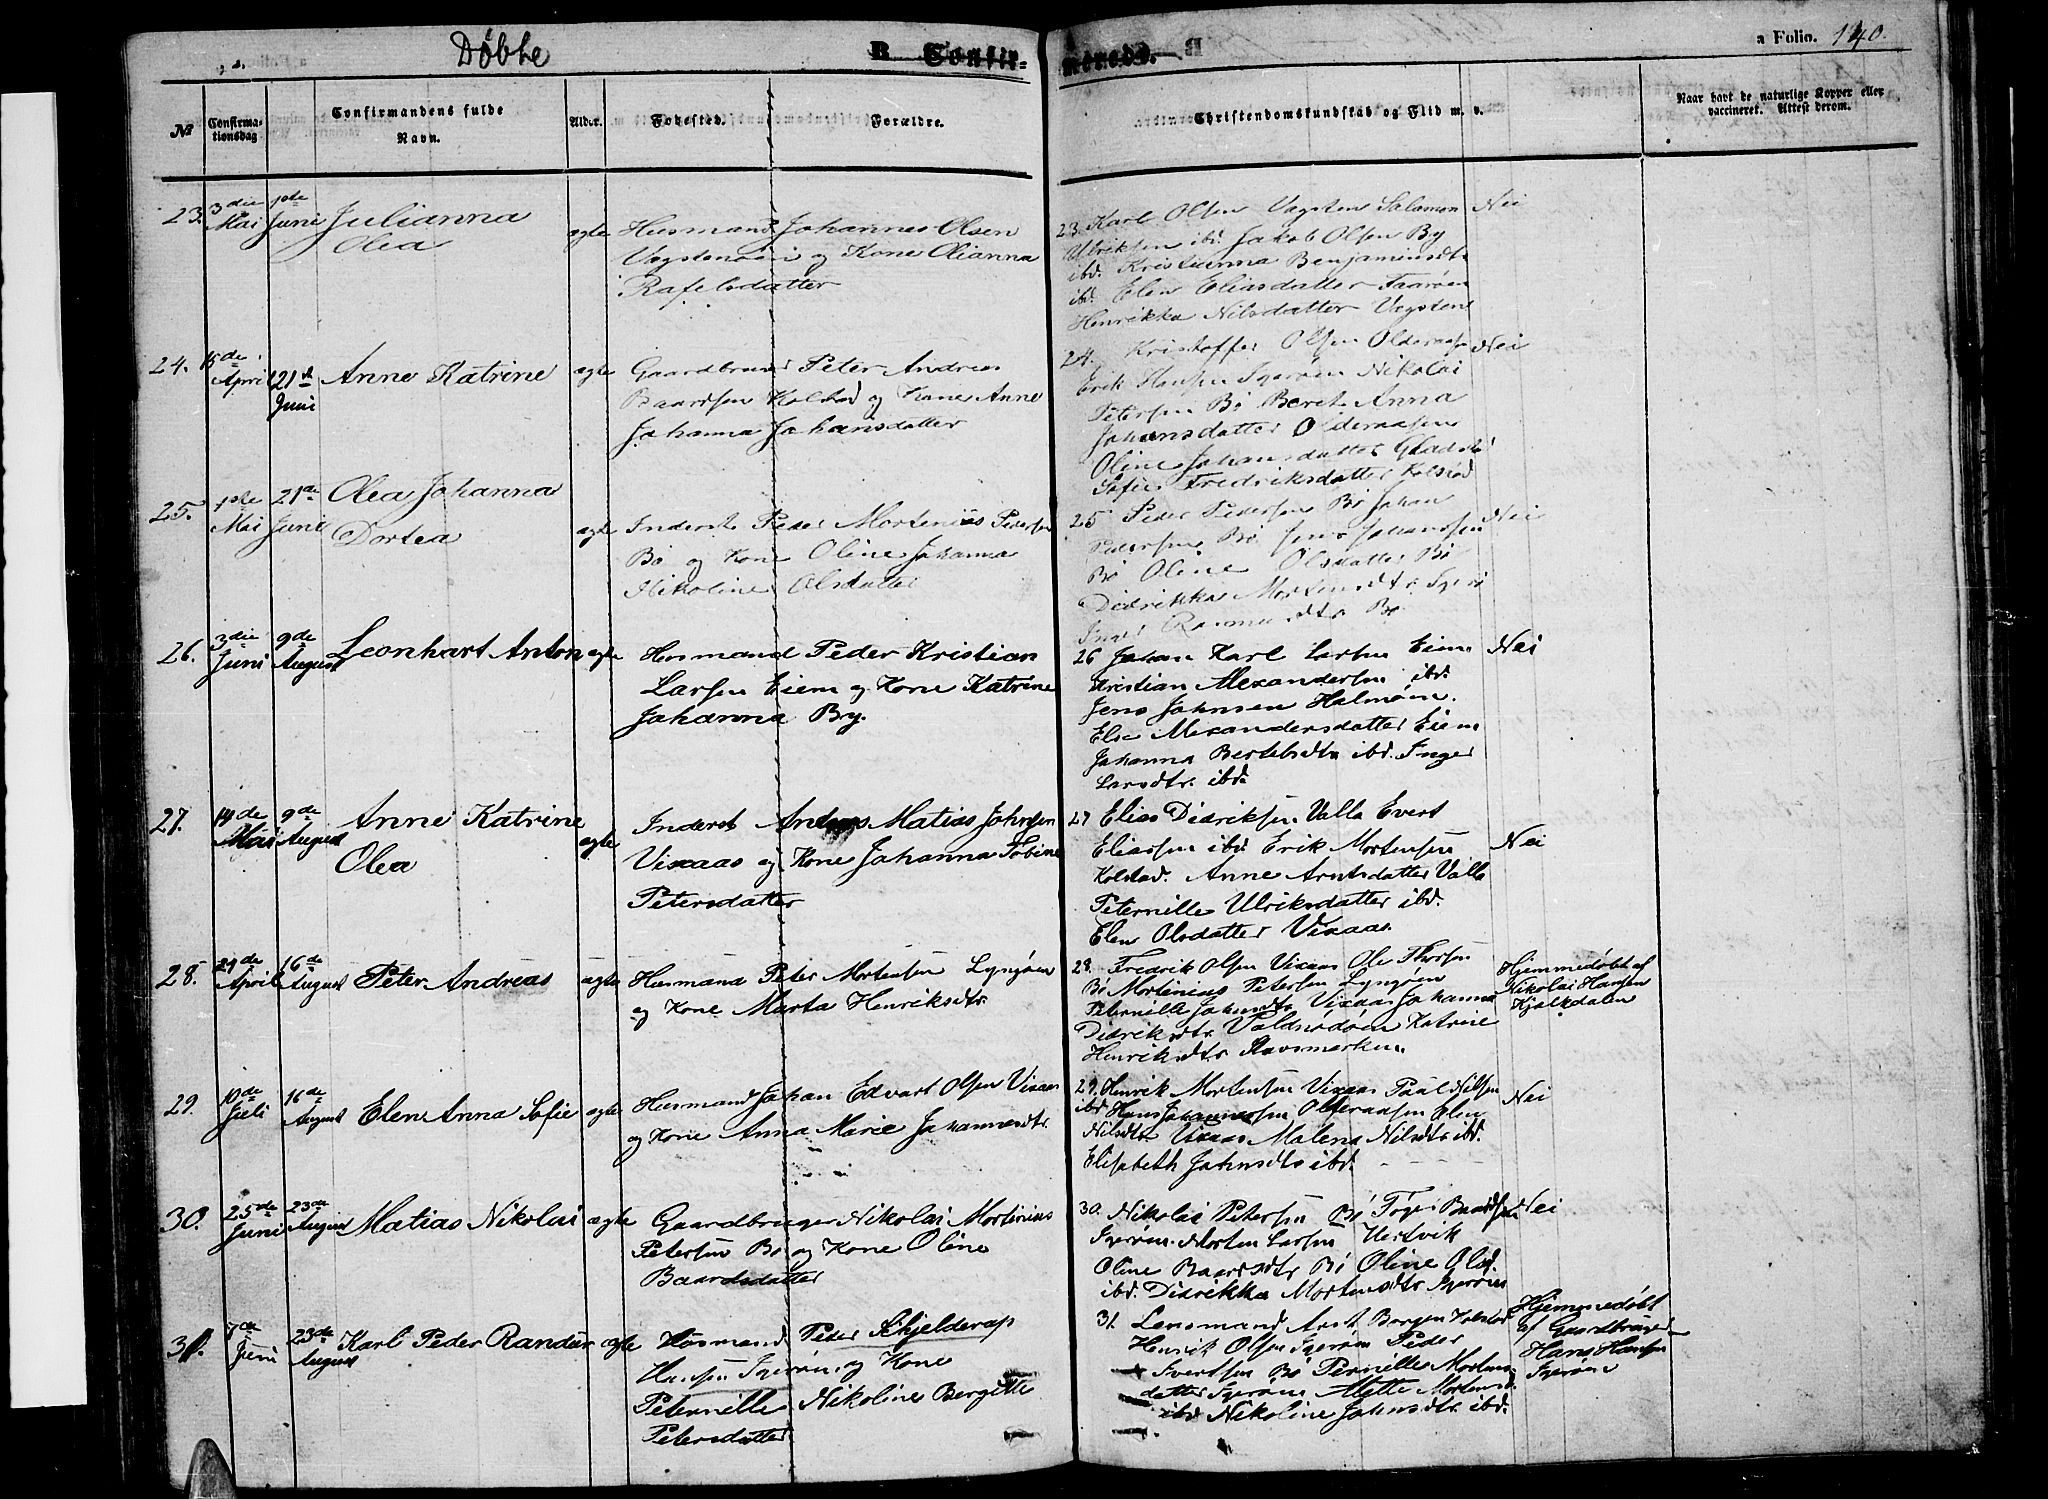 Døbte
B. Confir-
merede.
a Folio. 140.
№
Confirma-
tionsdag
Confirmandens fulde
Navn.
Alder.
Fødested.
Forældre.
Christendomskundskab og Flid m. v.
Naar havt de naturlige Kopper eller
vaccineret. Attest derom.
23. 3die Mai 1ste Juni Julianna
Olea
ægte
Husmand Johannes Olsen
Vegstenøien og Kone Olianna
Rafelsdatter
23. Karl Olsen Vegsten Salamon
Ulriksen ibd. Jakob Olsen By
ibd. Kristianna Benjaminsdtr
ibd. Elen Eliasdatter Taarøen
Henrikka Nilsdatter Vegsten
Nei
24. 15de April 21de Juni Anne Katrine
ægte
Gaardbruger Peter Andreas
Baardsen Kolstad og Kone Anne
Johanna Johansdatter
24. Kristoffer Olsen Olderaasen
Erik Hansen Igerøen Nikolai
Petersen Bø Beret Anna
Johansdatter Olderaasen
Oline Johansdatter
Sofie Fredriksdatter Kolstad
Nei
25. 1ste Mai 21de Juni Olea Johanna
Dortea
ægte
Inderst Peder Mortenias Pedersen
Bø og Kone Oline Johanna
Nikoline Olsdatter
25 Peder Pedersen Bø Johan
Pedersen Bø Jens Johansen
Bø Oline Olsdatter Bø
Didrikka Mortensdtr. Igerø
Inger Rasmusdtr. Bø
Nei
26. 3die Juni 9de August Leonhart Anton
ægte
Husmand Peder Kristian
Larsen Eiem og Kone Katrine
Johanna By.
26 Johan Karl Larsen Eiem
Kristian Alexandersen ibd.
Jens Johnsen Halmøen.
Else Alexandersdatter Eiem
Johanna Bertelsdtr ibd. Inger
Larsdtr. ibd.
Nei
27. 14de Mai 9de August Anne Katrine
Olea
ægte
Inderst Andreas Matias Johnsen
Vixaas og Kone Johanna Tobine
Petersdatter
27 Elias Didriksen Valla Evert
Eliassen ibd Erik Mortensen
Kolstad. Anne Arntsdatter Valla
Peternille Ulriksdatter ibd.
Elen Olsdatter Vixaas
Nei
28. 29de April 16de August Peter Andreas
ægte
Husmand Peter Mortensen Lyngøen
og Kone Marta Henriksdtr.
28. Fredrik Olsen Vixaas Ole Thorsen
Bø Mortinias Petersen Lyngøen
Peternille Johnsdtr Vixaas Johanna
Didriksdtr. Katrine
Henriksdtr. Stavsmarken.
Hjemmedøbt af
Nikolai Hansen
Kjelkdalen
29. 10de Juli 16de August Elen Anna Sofie
ægte
Husmand Johan Edvart Olsen Vixaas
og Kone Anna Marie Johannesdtr.
29. Henrik Mortensen Vixaas Paul Nilsen
ibd Hans Johannessen Olderaasen Elen
Nilsdtr Vixaas Malena Nilsdtr ibd.
Elisabeth Johnsdtr ibd.
Nei
30. 25de Juni 23de August Matias Nikolai
ægte
Gaardbruger Nikolai Mortinias
Petersen Bø og Kone Oline
Baardsdatter
30. Nikolai Petersen Bø Tøger Baardsen
Igerøen. Morten Larsen Hestvik
Oline Baardsdtr Bø Oline Olsd.
ibd. Didrikka Mortensdtr. Igerøen
Nei
31. 7de Juni 23de August Karl Peder Randur
ægte
Husmand Peder Schjelderap
Hansen Igerøen og Kone
Peternille Nikoline Bergitte
Petersdatter
31. Lensmand Arnt Borgen Kolstad
Henrik Olsen Igerøen Peder
Evertsen Bø Pernille Mortens-
datter Igerøen Mette Mortensd.
ibd Nikoline Johnsdtr. ibd.
Hjemmedøbt
af Gaardbruger
Hans Hansen
Igerøen